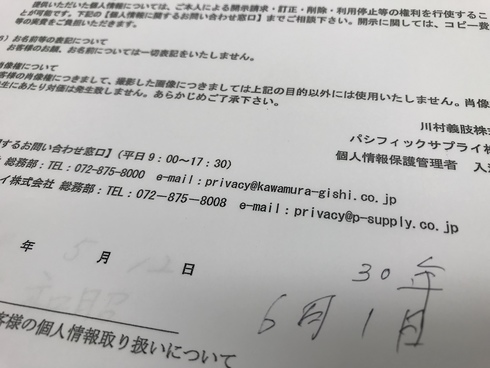 提供いただいた個人情報については、ご本人による開示請求・訂正・削除・利用停止等の権利を行使するこ
とが可能です。下記の【個人情報に関するお問い合わせ窓口】までご相談下さい。開示に関しては、コピー費
等の実費をご負担いただきます。
）お名前等の表記について
お客様の顔、お名前については一切表記をいたしません。
肖像権について
客様の肖像権につきまして、撮影した画像につきましては上記の目的以外には使用いたしません。肖像
生にあたり対価は発生致しません。あらかじめご了承下さい。
川村義肢株式
パシフィックサプライ株
個人情報保護管理者
するお問い合わせ窓口】(平日9:00～17:30)
総務部:TEL:072-875-8000 e-mail:privacy@kawamura-gishi.co.jp
イ株式会社 総務部:TEL:072-875-8008 e-mail:privacy@p-supply.co.jp
年 5月 12日
30年
6月1日
客様の個人情報取り扱いについて